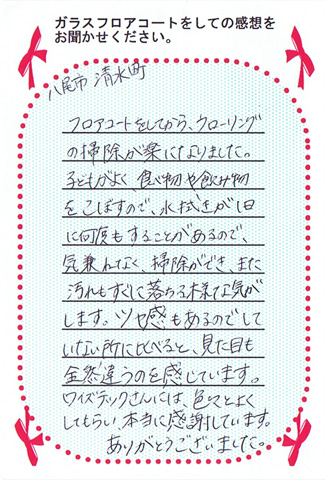 ガラスフロアコートをしての感想を
お聞かせください。
八尾市 清水町
フロアコートをしてから、フローリング
の掃除が楽になりました。
子どもがよく、食べ物や飲み物
をこぼすので、水拭きが1日
に何度もすることがあるので、
気兼ねなく、掃除ができ、また
汚れもすぐに落ちる様な気が
します。ツヤ感もあるのでして
いない所に比べると、見た目も
全然違うのを感じています。
ワイズテックさんには、色々とよく
してもらい、本当に感謝しています。
ありがとうございました。